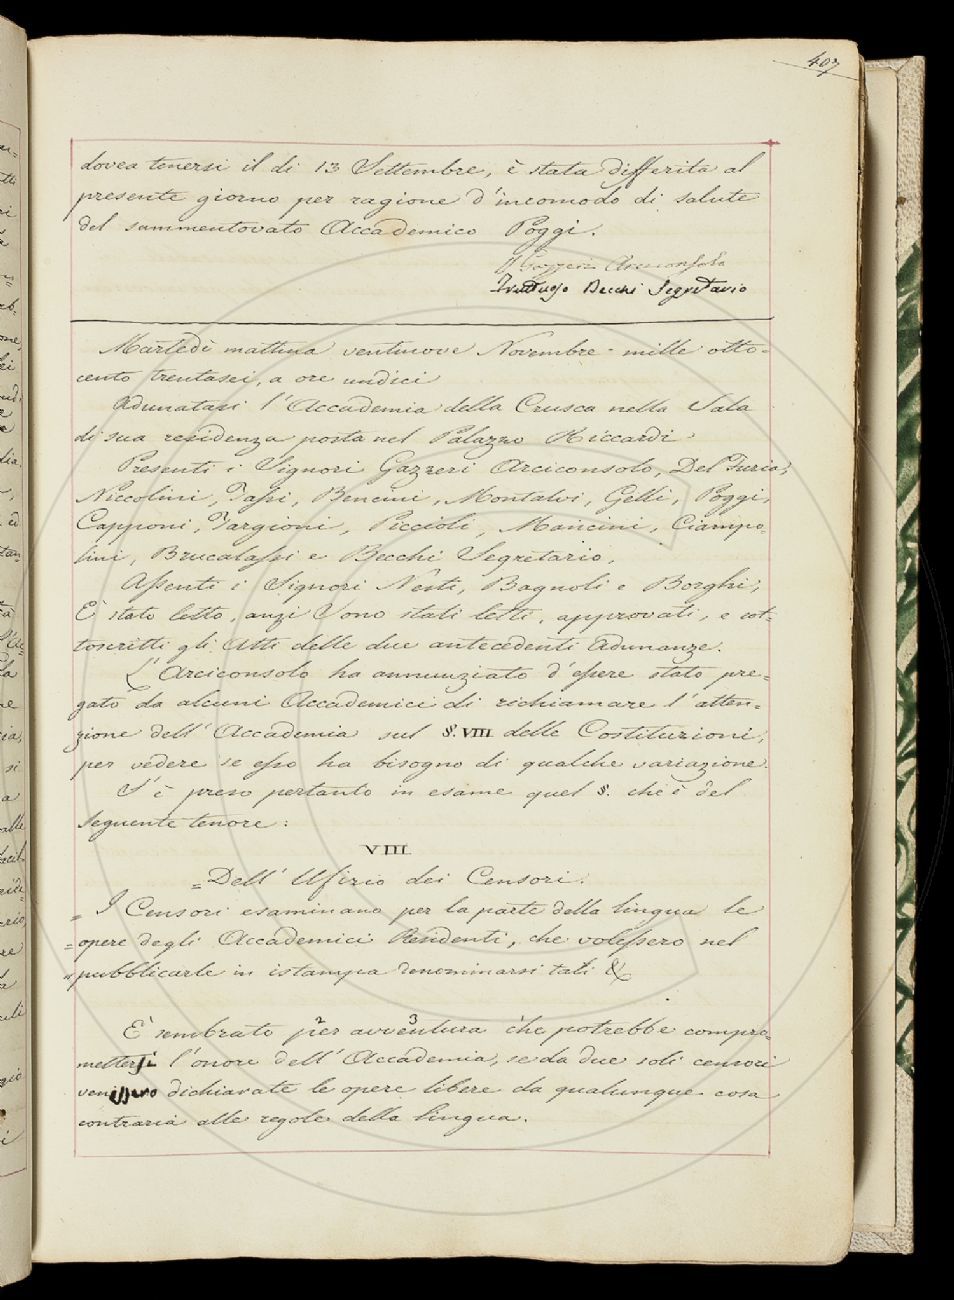 407
dovea tenersi il dì 13 Settembre, è stata differita al
presente giorno per ragione d'incomodo di salute
del summentovato Accademico Poggi.
Gazzeri Arciconsolo
Fruttuoso Becchi Segretario
Martedì mattina ventinove Novembre mille otto-
cento trentasei, a ore undici
Adunatasi l'Accademia della Crusca nella Sala
di sua residenza posta nel Palazzo Riccardi.
Presenti i Signori Gazzeri Arciconsolo, Del Furia,
Niccolini, Tassi, Bencini, Montalvi, Gelli, Poggi,
Capponi, Targioni, Piccioli, Mancini, Ciampo-
lini, Brucalassi e Becchi Segretario.
Assenti i Signori Nesti, Bagnoli e Borghi,
È stato letto, anzi sono stati letti, approvati, e sot-
toscritti gli Atti delle due antecedenti Adunanze.
L'Arciconsolo ha annunziato d'essere stato pre-
gato da alcuni Accademici di richiamare l'atten-
zione dell'Accademia sul §. VIII. delle Costituzioni,
per vedere se esso ha bisogno di qualche variazione.
S'è preso pertanto in esame quel §. che è del
seguente tenore:
VIII.
= Dell'Ufizio dei Censori.
= I Censori esaminano per la parte della lingua le
= opere degli Accademici Residenti, che volessero nel
= pubblicarle in istampa denominarsi tali &
È sembrato per avventura che potrebbe compro-
2 3
mettersi l'onore dell'Accademia, se da due soli censori
venissero dichiarate le opere libere da qualunque cosa
contraria alle regole della lingua.